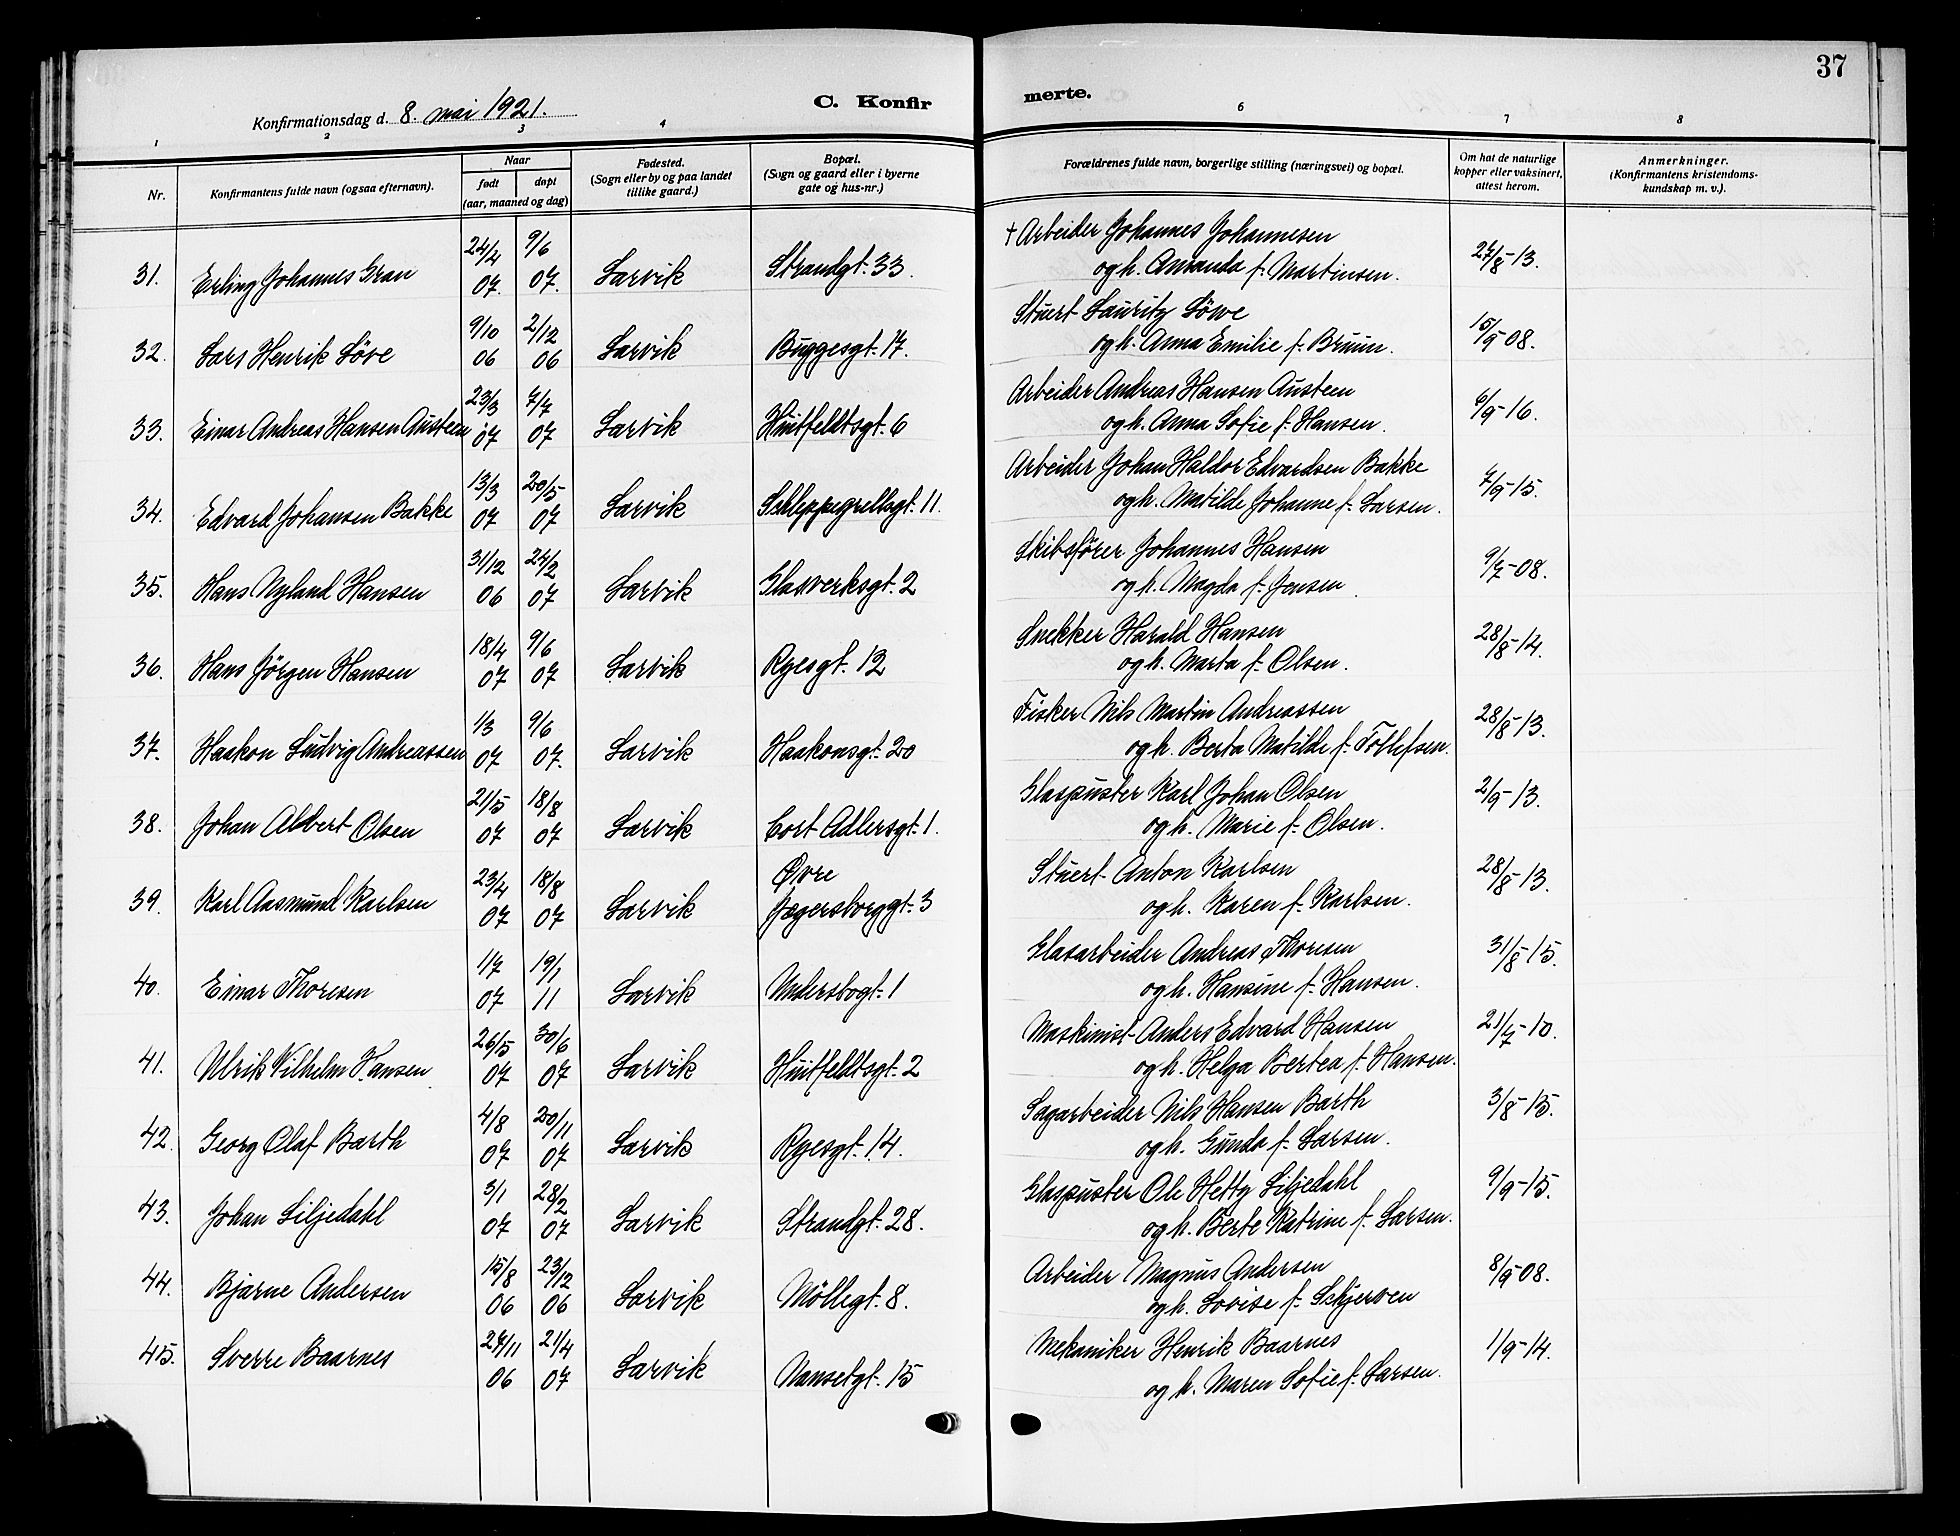 37
Konfirmationsdag d. 8. mai 1921.
C. Konfir
merte.
1 2 3 4 6 7 8
Nr.
Konfirmantens fulde navn (ogsaa efternavn).
Naar
født døpt
(aar, maaned og dag)
Fødested.
(Sogn eller by og paa landet
tillike gaard.)
Bopæl.
(Sogn og gaard eller i byerne
gate og hus-nr.)
Forældrenes fulde navn, borgerlige stilling (næringsvei) og bopæl.
Om hat de naturlige
kopper eller vaksinert,
attest herom.
Anmerkninger.
(Konfirmantens kristendoms-
kundskap m. v.).
24/4 9/6 † Arbeider Johannes Johannesen
31. Erling Johannes Gran 07. 07. Larvik Strandgt. 33. og h. Amanda f. Martinsen. 27/8-13.
9/10 2/12 Stuert Lauritz Löwe
32. Lars Henrik Löve 06 06 Larvik Buggesgt. 17. og h. Anna Emilie f. Bruun. 15/9-08.
23/3 7/7 Arbeider Andreas Hansen Austeen
33. Einar Andreas Hansen Austeen 07 07 Larvik Huitfeldtsgt. 6 og h. Anna Sofie f. Hansen. 6/9-16.
13/3 20/5 Arbeider Johan Haldor Edvardsen Bakke
34. Edvard Johansen Bakke 07 07 Larvik Schleppegrellsgt. 11. og h. Matilde Johanne f. Larsen. 7/9-15.
31/12 24/2 Skibsförer Johannes Hansen
35. Hans Nyland Hansen 06 07 Larvik Glasverksgt. 2 og h. Magda f. Jensen. 9/7-08.
18/4 9/6 Snekker Harald Hansen
36. Hans Jörgen Hansen 07 07 Larvik Ryesgt. 12 og h. Marta f. Olsen. 28/8-14.
1/3 9/6 Fisker Nils Martin Andreassen
37. Haakon Ludvig Andreassen 07 07. Larvik Haakonsgt. 20 og h. Berta Matilde f. Tollefsen. 28/8-13.
21/5 18/8 Glaspuster Karl Johan Olsen
38. Johan Albert Olsen 07 07 Larvik Cort Adlersgt. 1. og h. Marie f. Olsen. 2/9-13.
23/4 18/8 Øvre Stuert Anton Karlsen
39. Karl Aasmund Karlsen 07 07 Larvik Jægersborggt. 3 og h. Karen f. Karlsen. 28/8-13.
1/7 19/1 Glasarbeider Andreas Thoresen
40. Einar Thoresen 07 11 Larvik Undersbogt. 1 og h. Hansine f. Hansen. 31/8-15.
26/5 30/6 Maskinist Anders Edvard Hansen
41. Ulrik Vilhelm Hansen 07 07 Larvik Huitfeldtsgt. 2 og h. Helga Bertea f. Hansen. 21/7-10.
4/8 20/11 Sagarbeider Nils Hansen Barth
42. Georg Olaf Barth 07 07 Larvik Ryesgt. 14. og h. Gunda f. Larsen. 3/8-15.
3/1 28/2 Glaspuster Ole Hetty Liljedahl
43. Johan Liljedahl 07 07 Larvik Strandgt. 28. og h. Berte Katrine f. Larsen. 9/9-15.
15/8 23/12 Arbeider Magnus Andersen
44. Bjarne Andersen 06 06 Larvik Möllegt. 8. og h. Lovise f. Schjerven 8/9-08.
27/11 21/4 Mekaniker Henrik Baarnes
45. Sverre Baarnes 06 07 Larvik Nansetgt. 15 og h. Maren Sofie f. Larsen. 1/9-14.